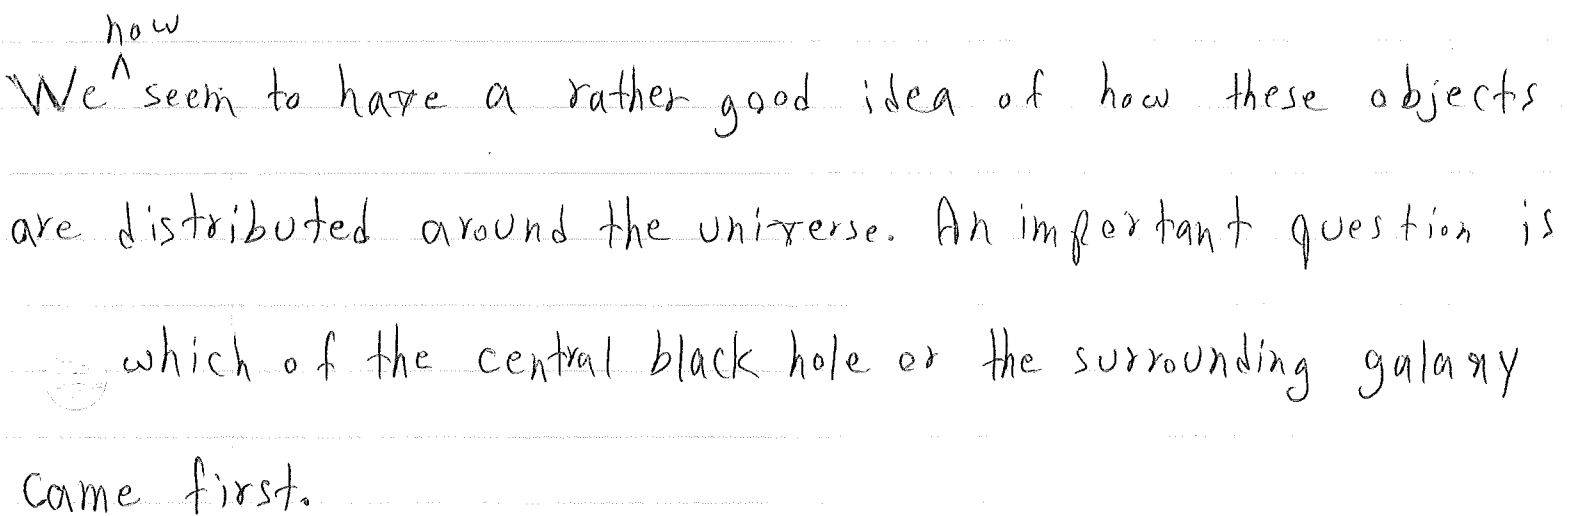 We now seem to have a rather good idea of how these objects
are distributed around the universe. An important question is
which of the central black hole or the surrounding galaxy
came first.